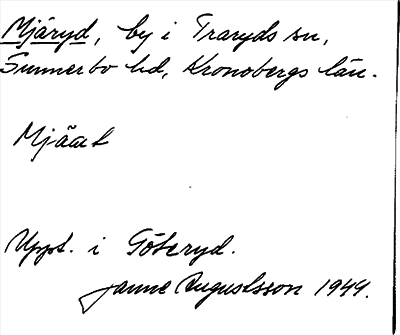 Mjäryd, by i Traryds sn,
Sunnerbo hd, Kronobergs län.
Mjäat
Uppt. i Göteryd.
Janne Augustsson 1944.